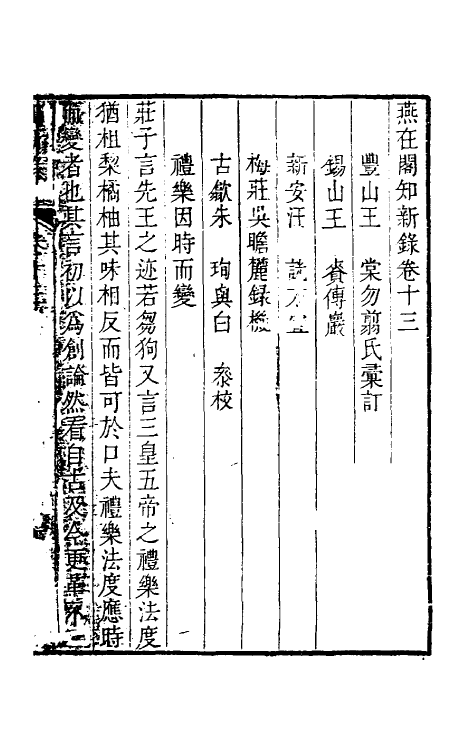 燕在閣知新錄卷十三
豐山王　棠勿翦氏彙訂
錫山王　賡傳巖
新安汪
梅莊吳瞻麓錄機
古歙朱　珣輿白　參校
禮樂因時而變
莊子言先王之迹若芻狗又言三皇五帝之禮樂法度
猶柤棃橘柚其味相反而皆可於口夫禮樂法度應時
變者也其言初以為創論然看自古及今更革